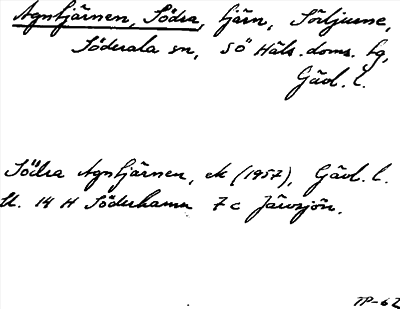 Agntjärnen, Södra, tjärn, Sörljusne,
Söderala sn, SÖ Häls. doms. hg,
Gävl. l.
Södra Agntjärnen, ek (1957), Gävl. l.
Bl. 14 H Söderhamn 7 c Järvsjön.
TP-62